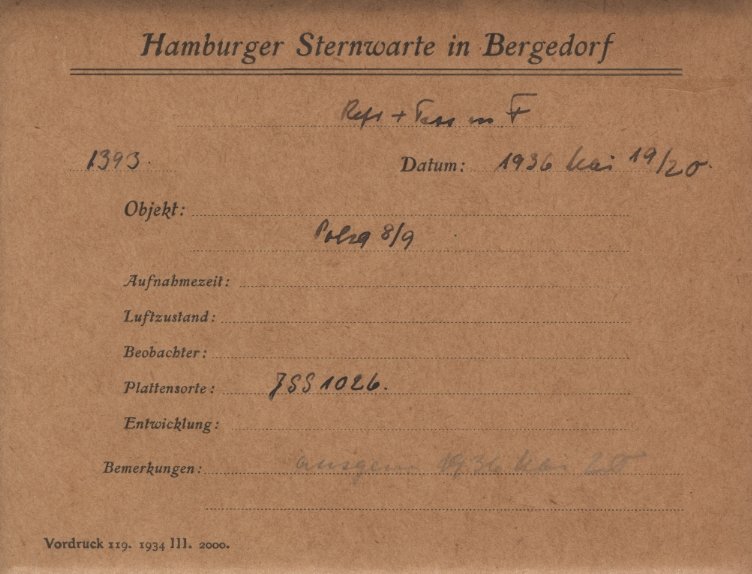 Hamburger Sternwarte in Bergedorf
1393. Datum: 1936 Mai 19/20.
Objekt:
8/9
Aufnahmezeit:
Luftzustand:
Beobachter:
Plattensorte: JSS 1026.
Entwicklung:
Bemerkungen: 1936 Mai 20
Vordruck 119. 1934 III. 2000.